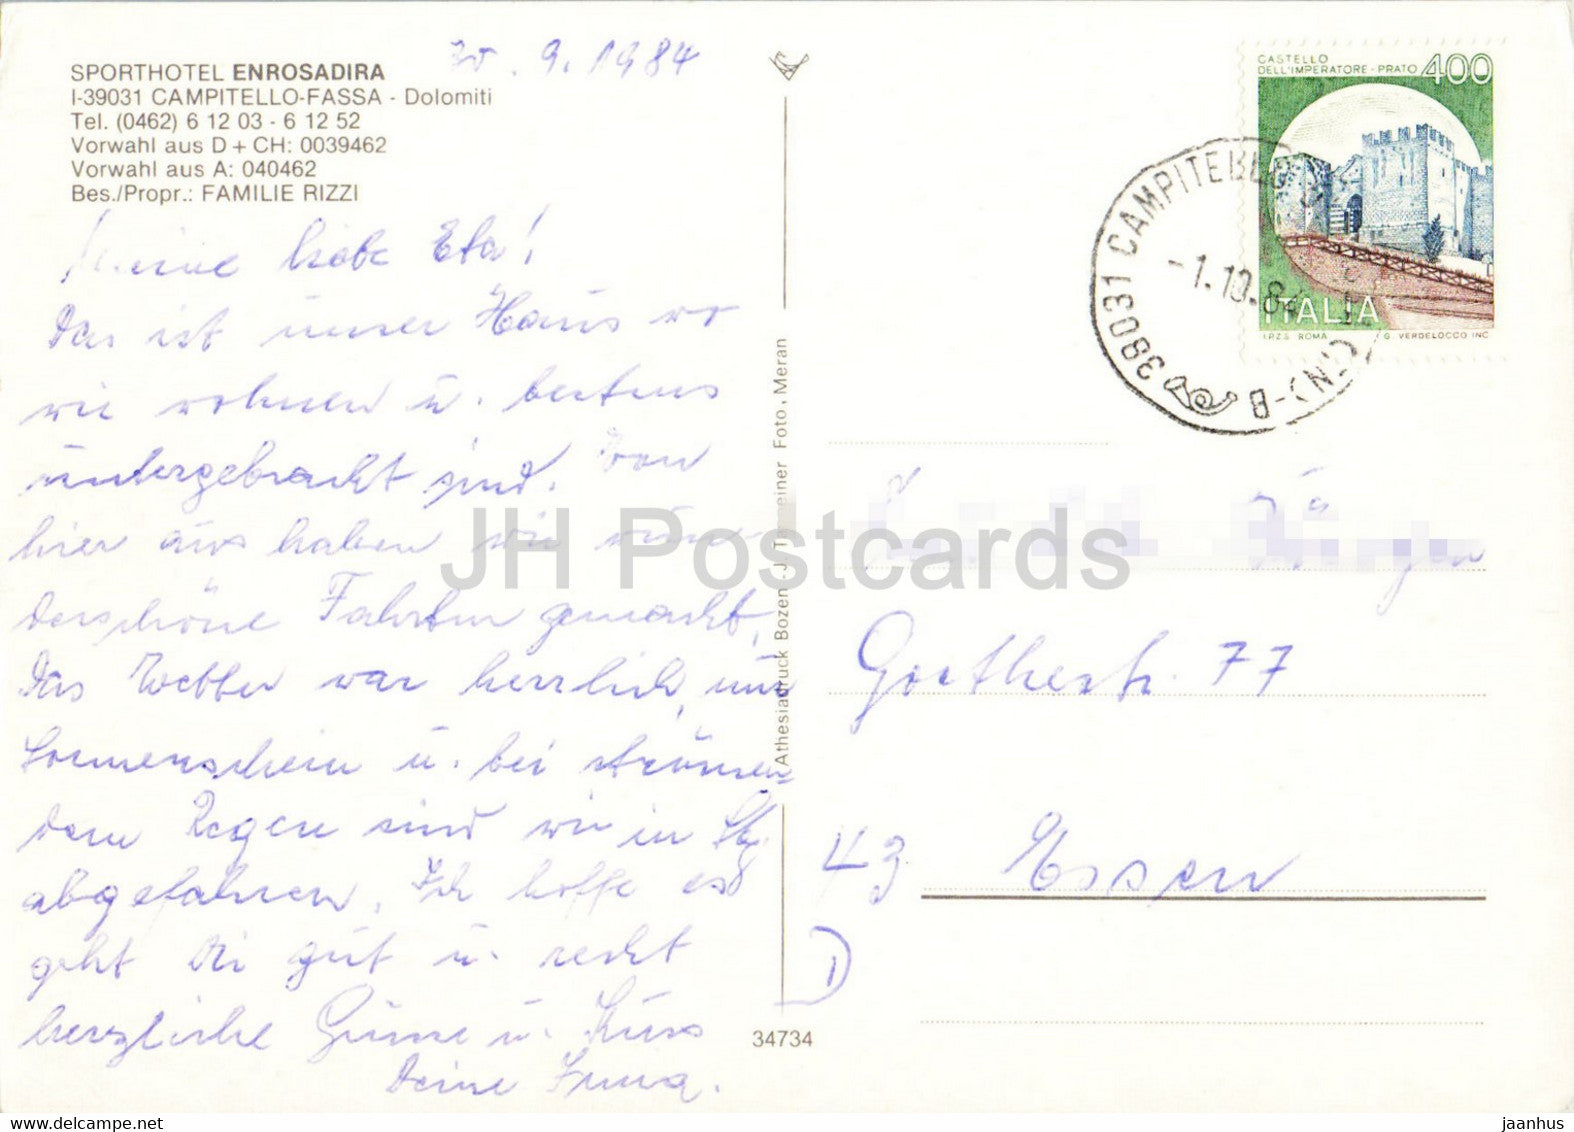 SPORTHOTEL ENROSADIRA
I-39031 CAMPITELLO-FASSA - Dolomiti
Tel. (0462) 6 12 03 - 6 12 52
Vorwahl aus D + CH: 0039462
Vorwahl aus A: 040462
Bes./Propr.: FAMILIE RIZZI
30. 9. 1984
Meine liebe Eta!
Das ist unser Haus wo
wir wohnen u. bestens
untergebracht sind. Von
hier aus haben wir wun
derschöne Fahrten gemacht,
das Wetter war herrlich, nur
Sonnenschein u. bei strömen
dem Regen sind wir in
abgefahren. Ich hoffe es
geht Dir gut u. recht
herzliche Grüsse u. Kuss
Deine
Athesiadruck Bozen - J. Ta einer Foto, Meran
34734
CASTELLO
DELL'IMPERATORE - PRATO 400
ITALIA
I.P.Z.S. ROMA G. VERDELOCCO INC.
38031 CAMPITELLO
(TN) - B
-1.10.84
Goethestr. 77
43 Essen
D
JH Postcards
delcampe.net
jaanhus